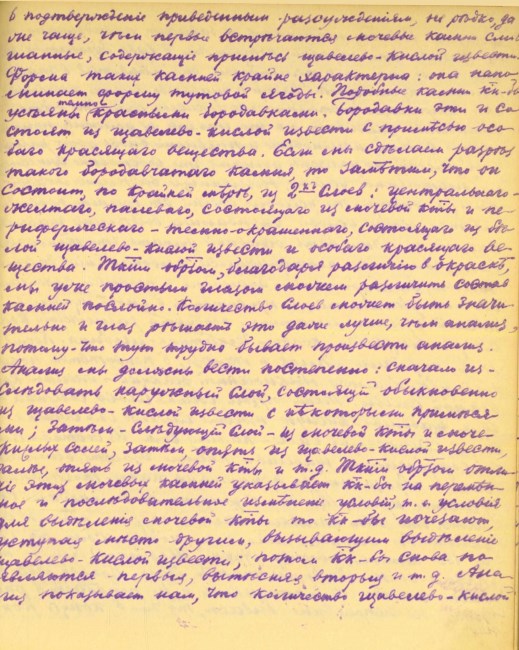 въ подтвержденіе приведеннымъ разсужденіямъ, не рѣдко, да
же чаще, чѣмъ первые встрѣчаются мочевые камни смѣ-
шанные, содержащіе примѣсь щавелево-кислой извести.
Форма такихъ камней крайне характерна: она напо-
минаетъ форму тутовой ягоды. Подобные камни кк-бы
усѣяны темно красными бородавками. Бородавки эти и со
стоятъ изъ щавелево-кислой извести съ примѣсью осо-
баго красящаго вещества. Если мы сдѣлаемъ разрѣзъ
такого бородавчатаго камня, то замѣтимъ, что онъ
состоитъ, по крайней мѣрѣ, изъ 2хъ слоевъ: центральнаго-
желтаго, палеваго, состоящаго изъ мочевой к-ты и пе-
риферическаго - темно-окрашеннаго, состоящаго изъ
щавелево-кислой извести и особаго красящаго ве-
щества. Ткимъ обрзомъ, благодаря различію въ окраскѣ,
мы уже простымъ глазомъ можемъ различить составъ
камней послойно. Количество слоевъ можетъ быть значи-
тельно и глазъ рѣшаетъ это даже лучше, чѣмъ анализъ,
потому-что тутъ трудно бываетъ произвести анализъ.
Анализъ мы должны вести постепенно: сначала из-
слѣдовать наружный слой, состоящій обыкновенно
изъ щавелево-кислой извести съ нѣкоторыми примѣся-
ми; затѣмъ-слѣдующій слой-изъ мочевой к-ты и моче-
кислыхъ солей, затѣмъ опять изъ щавелево-кислой извести,
далѣе, опять изъ мочевой к-ты и т.д. Ткимъ обрзомъ отли-
чіе этихъ мочевыхъ камней указываетъ кк-бы на перемѣн-
ное и послѣдовательное измѣненіе условій, т.е. условія
для выдѣленія мочевой к-ты то кк-бы исчезаютъ,
уступая мѣсто другимъ, вызывающимъ выдѣленіе
щавелево-кислой извести; потомъ кк-бы снова по
являются первыя, вытѣсняя вторыя и т.д. Ана-
лизъ показываетъ намъ, что количество щавелево-кислой